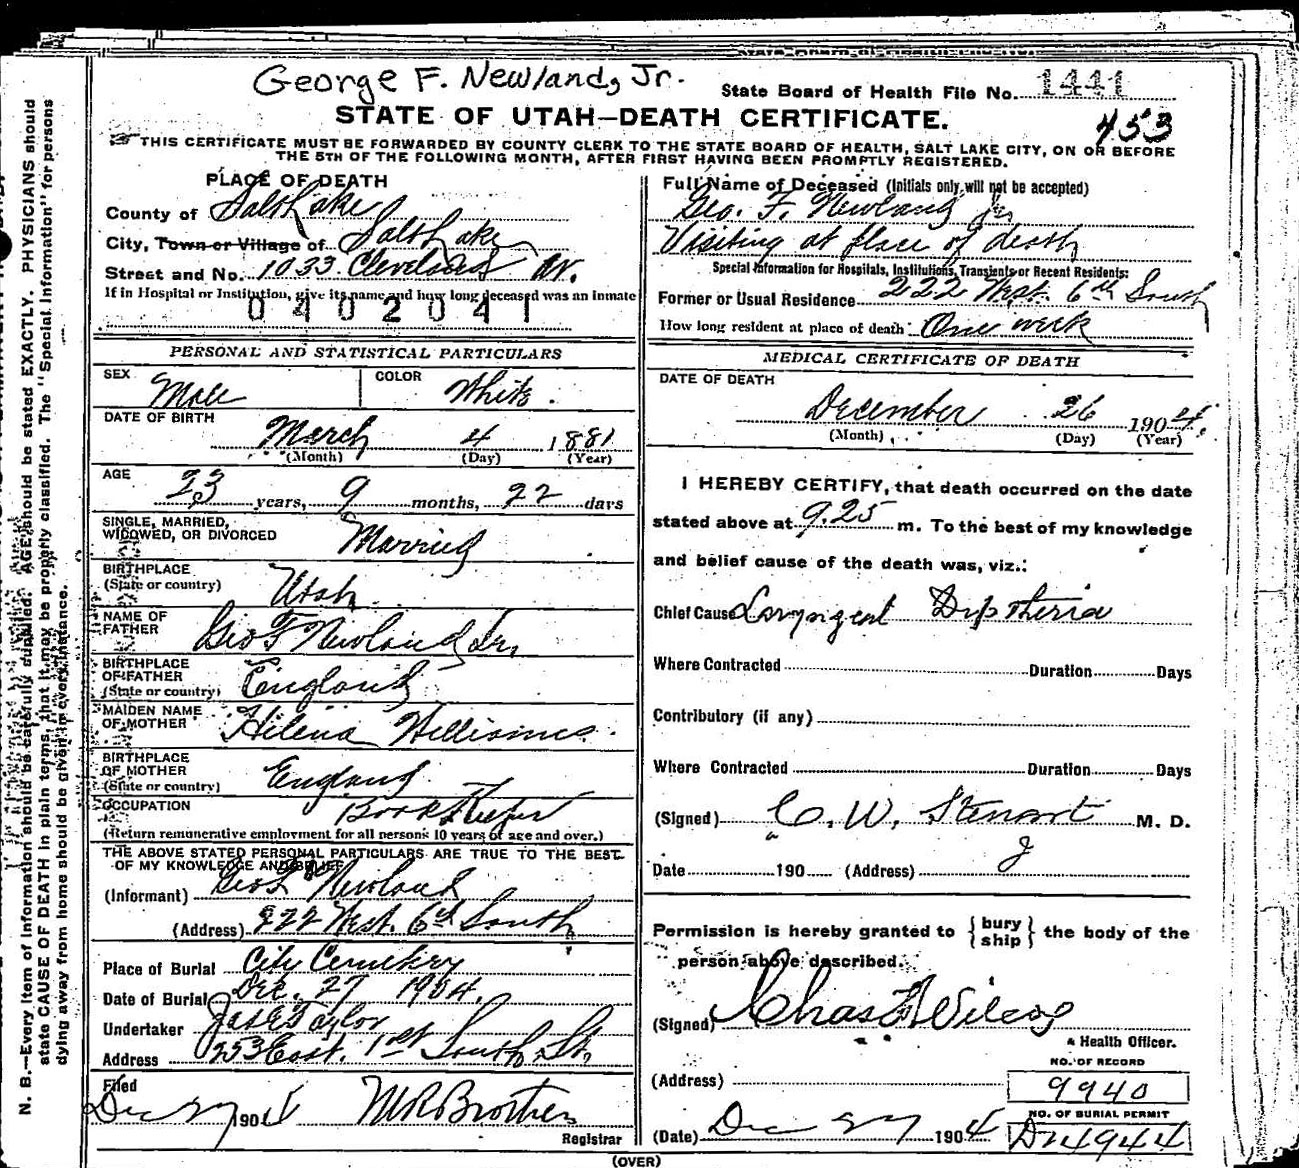 George F. Newland, Jr.
State Board of Health File No. 1441
STATE OF UTAH—DEATH CERTIFICATE.
453
THIS CERTIFICATE MUST BE FORWARDED BY COUNTY CLERK TO THE STATE BOARD OF HEALTH, SALT LAKE CITY, ON OR BEFORE
THE 5TH OF THE FOLLOWING MONTH, AFTER FIRST HAVING BEEN PROMPTLY REGISTERED.
PLACE OF DEATH
County of Salt Lake
City, Town or Village of Salt Lake
Street and No. 1033 Cleveland Av.
If in Hospital or Institution, give its name and how long deceased was an Inmate
0402041
Full Name of Deceased (Initials only will not be accepted)
Geo. F. Newland Jr
Visiting at place of death
Special Information for Hospitals, Institutions, Transients or Recent Residents:
Former or Usual Residence 222 West 6th South
How long resident at place of death One week
PERSONAL AND STATISTICAL PARTICULARS
SEX Male
COLOR White.
DATE OF BIRTH
March 4 1881
(Month) (Day) (Year)
AGE
23 years, 9 months, 22 days
SINGLE, MARRIED,
WIDOWED, OR DIVORCED Married
BIRTHPLACE
(State or country) Utah
NAME OF
FATHER Geo F Newland Sr.
BIRTHPLACE
OF FATHER
(State or country) England
MAIDEN NAME
OF MOTHER Helena Williams.
BIRTHPLACE
OF MOTHER
(State or country) England
OCCUPATION Book Keeper
(Return remunerative employment for all persons 10 years of age and over.)
THE ABOVE STATED PERSONAL PARTICULARS ARE TRUE TO THE BEST
OF MY KNOWLEDGE AND BELIEF
(Informant) Geo F Newland
(Address) 222 West 6th South
Place of Burial City Cemetery
Date of Burial Dec. 27 1904.
Undertaker Jos E Taylor
Address 253 East 1st South St.
Filed
Dec 27 1904 M R Brothers
Registrar
MEDICAL CERTIFICATE OF DEATH
DATE OF DEATH
December 26 1904.
(Month) (Day) (Year)
I HEREBY CERTIFY, that death occurred on the date
stated above at 9.25 m. To the best of my knowledge
and belief cause of the death was, viz.:
Chief Cause Laryngeal Diptheria
Where Contracted Duration Days
Contributory (if any)
Where Contracted Duration Days
(Signed) C. W. Stewart M. D.
Date 190 (Address)
Permission is hereby granted to {bury
ship} the body of the
person above described.
(Signed) Chas F Wilcox
Health Officer.
NO. OF RECORD
(Address) 9940
NO. OF BURIAL PERMIT
(Date) Dec 27 1904 D 4944
(OVER)
N. B.—Every item of information should be carefully supplied. AGE should be stated EXACTLY. PHYSICIANS should
state CAUSE OF DEATH in plain terms, that it may be properly classified. The "Special Information" for persons
dying away from home should be given in every instance.